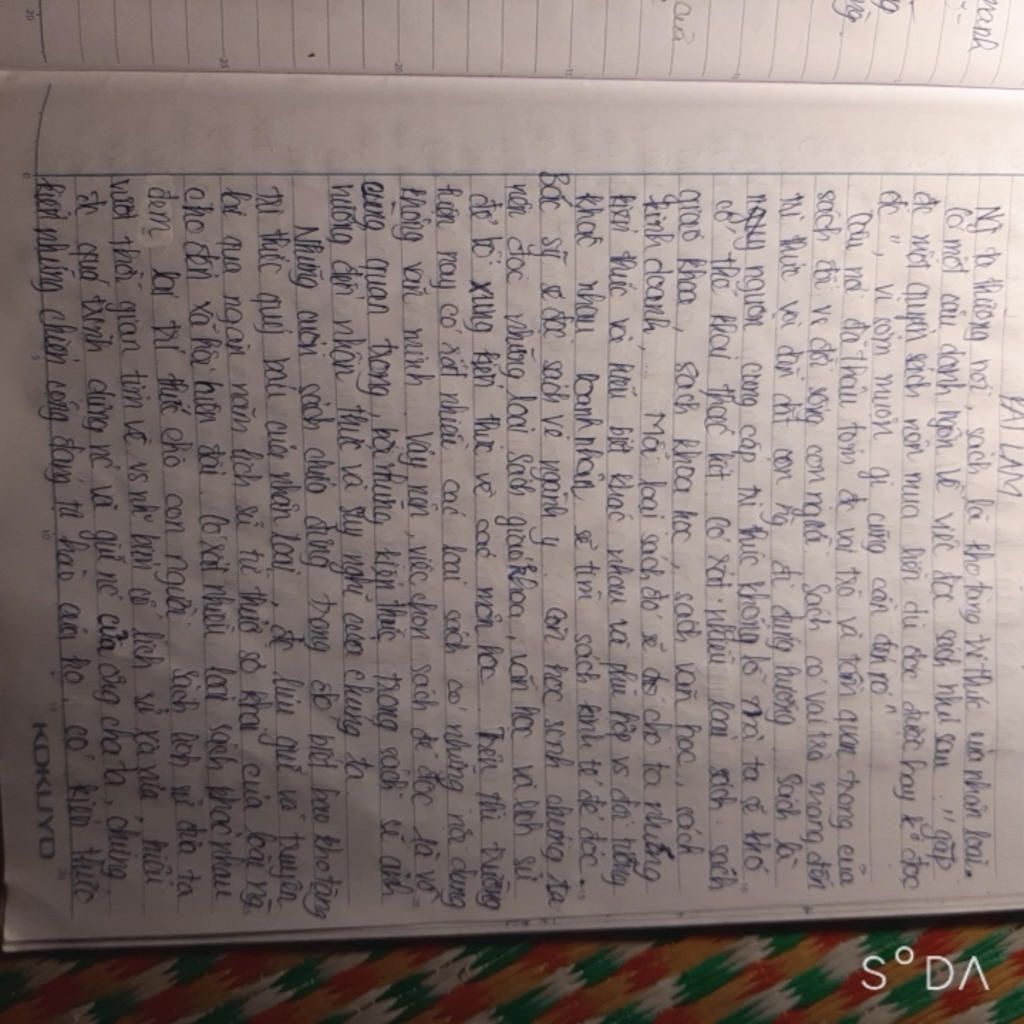 BÀI LÀM
Ng ta thường nói, sách là kho tàng tri thức của nhân loại.
Có một câu danh ngôn về việc đọc sách như sau "gặp
đc một quyển sách nên mua liền dù đọc được hay k đọc
đc, vì sớm muộn gì cũng cần đến nó"
Câu nói đã thâu tóm đc vai trò và tầm quan trọng của
sách đối vs đời sống con người. Sách có vai trò mang đến
tri thức và dẫn dắt con ng đi đúng hướng. Sách là
nguồn cung cấp tri thức khổng lồ mà ta sẽ khó
có thể khai thác hết có rất nhiều loại sách: sách
giáo khoa, sách khoa học, sách văn học, sách
kinh doanh,... Mỗi loại sách đó sẽ cho ta những
kiến thức và hiểu biết khác nhau và phù hợp vs đối tượng
khác nhau. Doanh nhân sẽ tìm sách kinh tế để đọc.
Bác sỹ sẽ đọc sách về ngành y. Còn học sinh chúng ta
nên đọc những loại sách giáo khoa, văn học và lịch sử
để bổ xung kiến thức về các môn học. Trên thị trường
hiện nay có rất nhiều các loại sách có những nội dung
không văn minh. Vậy nên, việc chọn sách để đọc là vô
cùng quan trọng, bởi những kiến thức trong sách sẽ ảnh
hưởng đến nhận thức và suy nghĩ của chúng ta
Những cuốn sách chứa đựng trong đó biết bao kho tàng
tri thức quý báu của nhân loại, đc lưu giữ và truyền
lại qua ngàn năm lịch sử từ thuở sơ khai của loài ng
cho đến xã hội hiện đại. Có rất nhiều loại sách khác nhau
đem lại tri thức cho con người. Sách lịch sử đưa ta
vượt thời gian tìm về vs những lịch sử xa xưa, hiểu
đc quá trình dựng nc và giữ nc của ông cha ta, chứng
kiến những chiến công đáng tự hào của họ, có kiến thức
KOKUYO
SODA